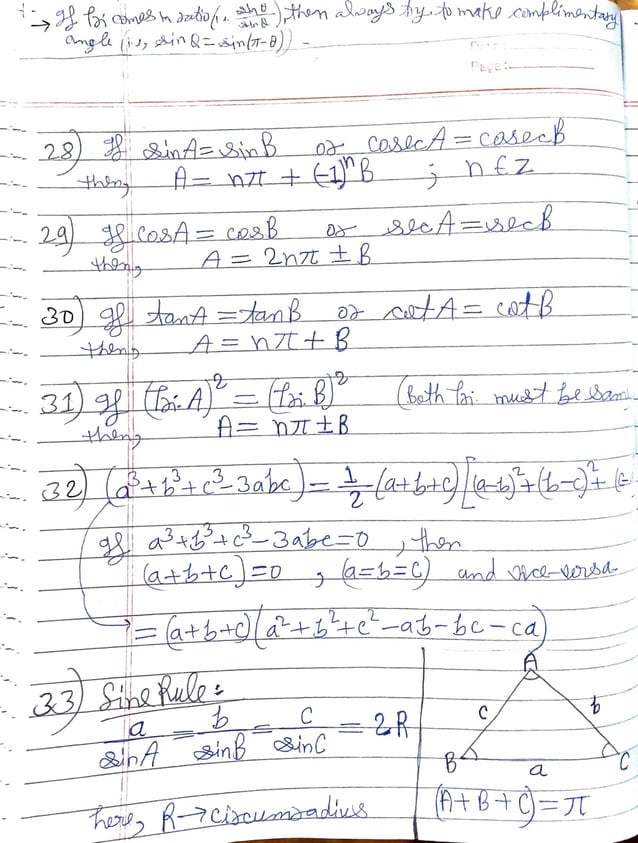 → If Tri comes in ratio (i.e., sinθ/sinθ), then always try to make complimentary
angle (i.e., sinθ = sin(π-θ))
Page:
28) If sinA = sinB or cosecA = cosecB
then, A = nπ + (-1)ⁿB ; n ∈ Z
29) If cosA = cosB or secA = secB
then, A = 2nπ ± B
30) If tanA = tanB or cotA = cotB
then, A = nπ + B
31) If (Tri. A)² = (Tri. B)² (Both Tri. must be sam
then, A = nπ ± B
32) (a³+b³+c³-3abc) = 1/2 (a+b+c) [(a-b)²+(b-c)²+(c-
If a³+b³+c³-3abc=0 , then
(a+b+c)=0 , (a=b=c) and vice-versa
= (a+b+c)(a²+b²+c²-ab-bc-ca)
33) Sine Rule:
a/sinA = b/sinB = c/sinC = 2R
here, R → circumradius
A
c b
B a C
(A+B+C) = π